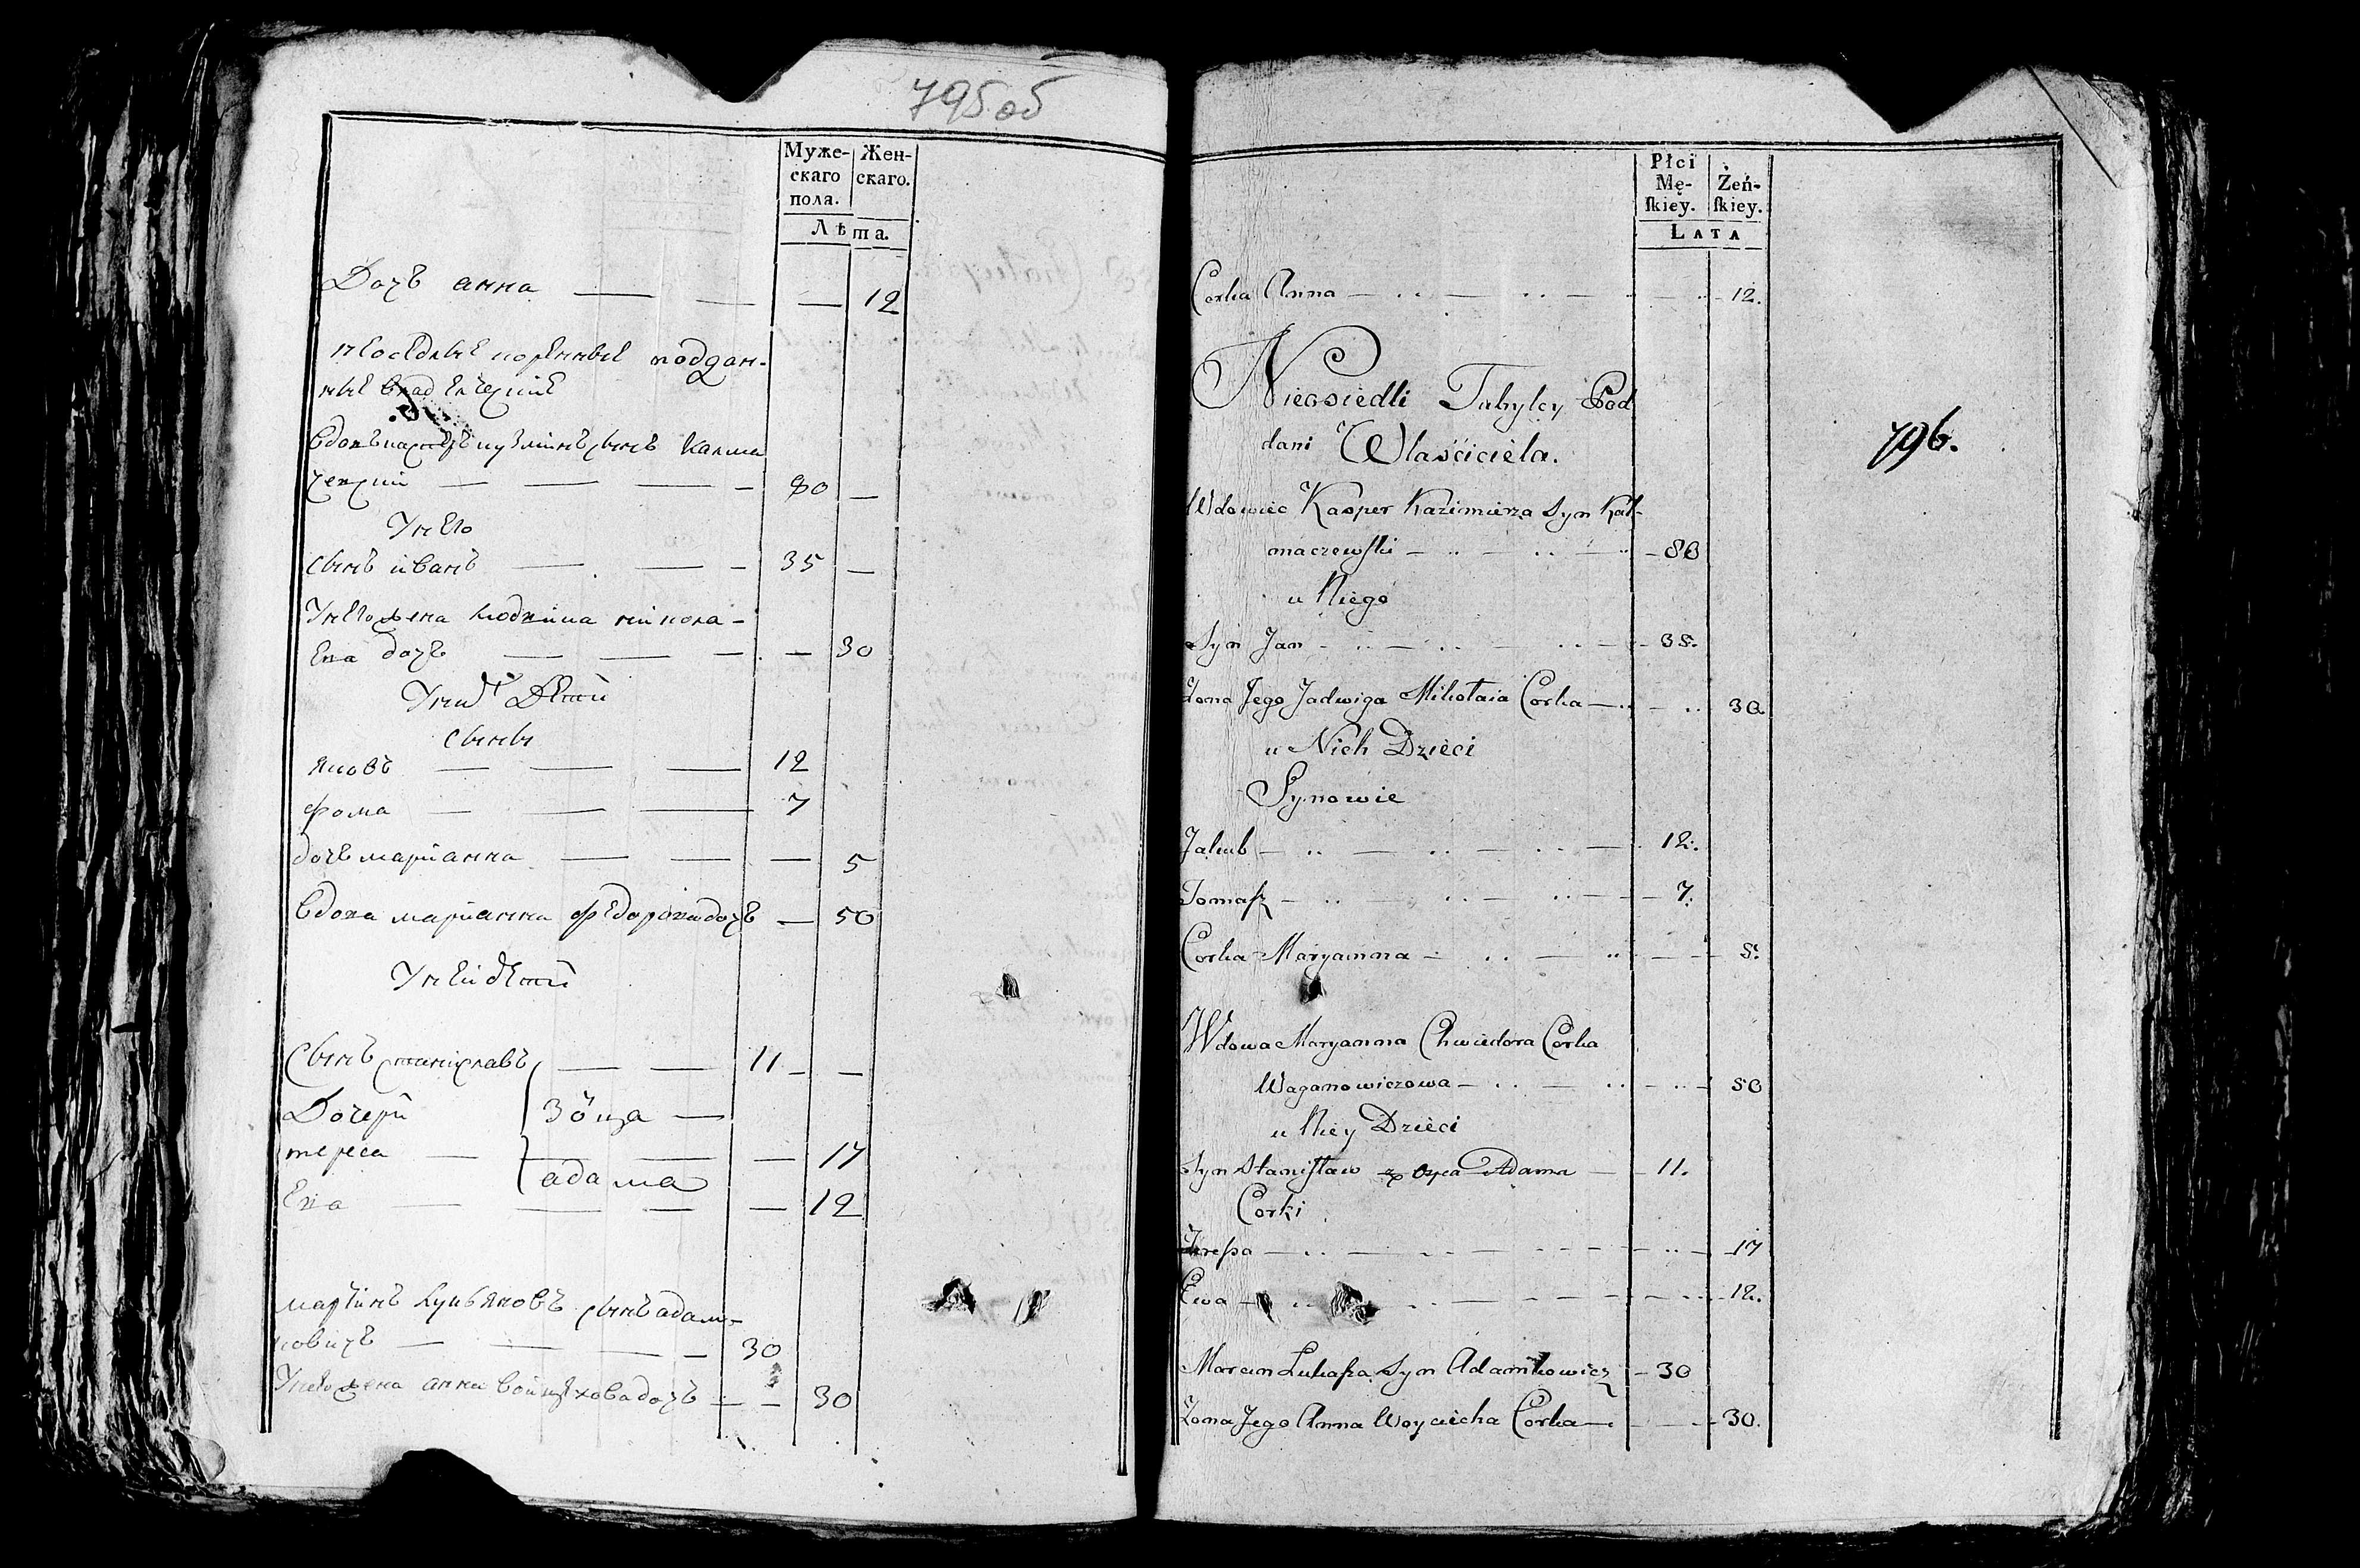 795об
Муже- Жен-
скаго скаго.
пола.
Лѣта.
Дочь анна 12
неоседлые коренные поддан-
ные владелческие
вдовъ каспръ кузминъ сынъ калма
чевский 80
У него
сынъ иванъ 35
У него жена ядвига никола-
ева дочь 30
У нихъ Дети
сыны
яковъ 12
фома 7
дочь марианна 5
вдова марианна федорова дочь 50
У ней дети
Сынъ станиславъ 11
Дочери з оца
тереса 17
адама
Ева 12
мартинъ лукьяновъ сынъ адам-
ковичъ 30
У него жена анна войцехова дочь 30
Płci
Mę- Żeń-
ſkiey. ſkiey.
LATA
Corka Anna 12.
Nieosiedli Tubylcy Pod
dani Właściciela.
Wdowiec Kasper Kazimierza Syn Kał-
maczewſki 80
u Niego
Syn Jan 35.
Zona Jego Jadwiga Mikołaia Corka 30
u Nich Dzieci
Synowie
Jakub 12.
Tomaſz 7.
Corka Maryanna 5.
796.
Wdowa Maryanna Chwiedora Corka
Waganowiczowa 50
u Niey Dzieci
Syn Staniſław z Oyca Adama 11.
Corki
Tereſsa 17
Ewa 12.
Marcin Łukaſza Syn Adamkowicz 30
Zona Jego Anna Woyciecha Corka 30.